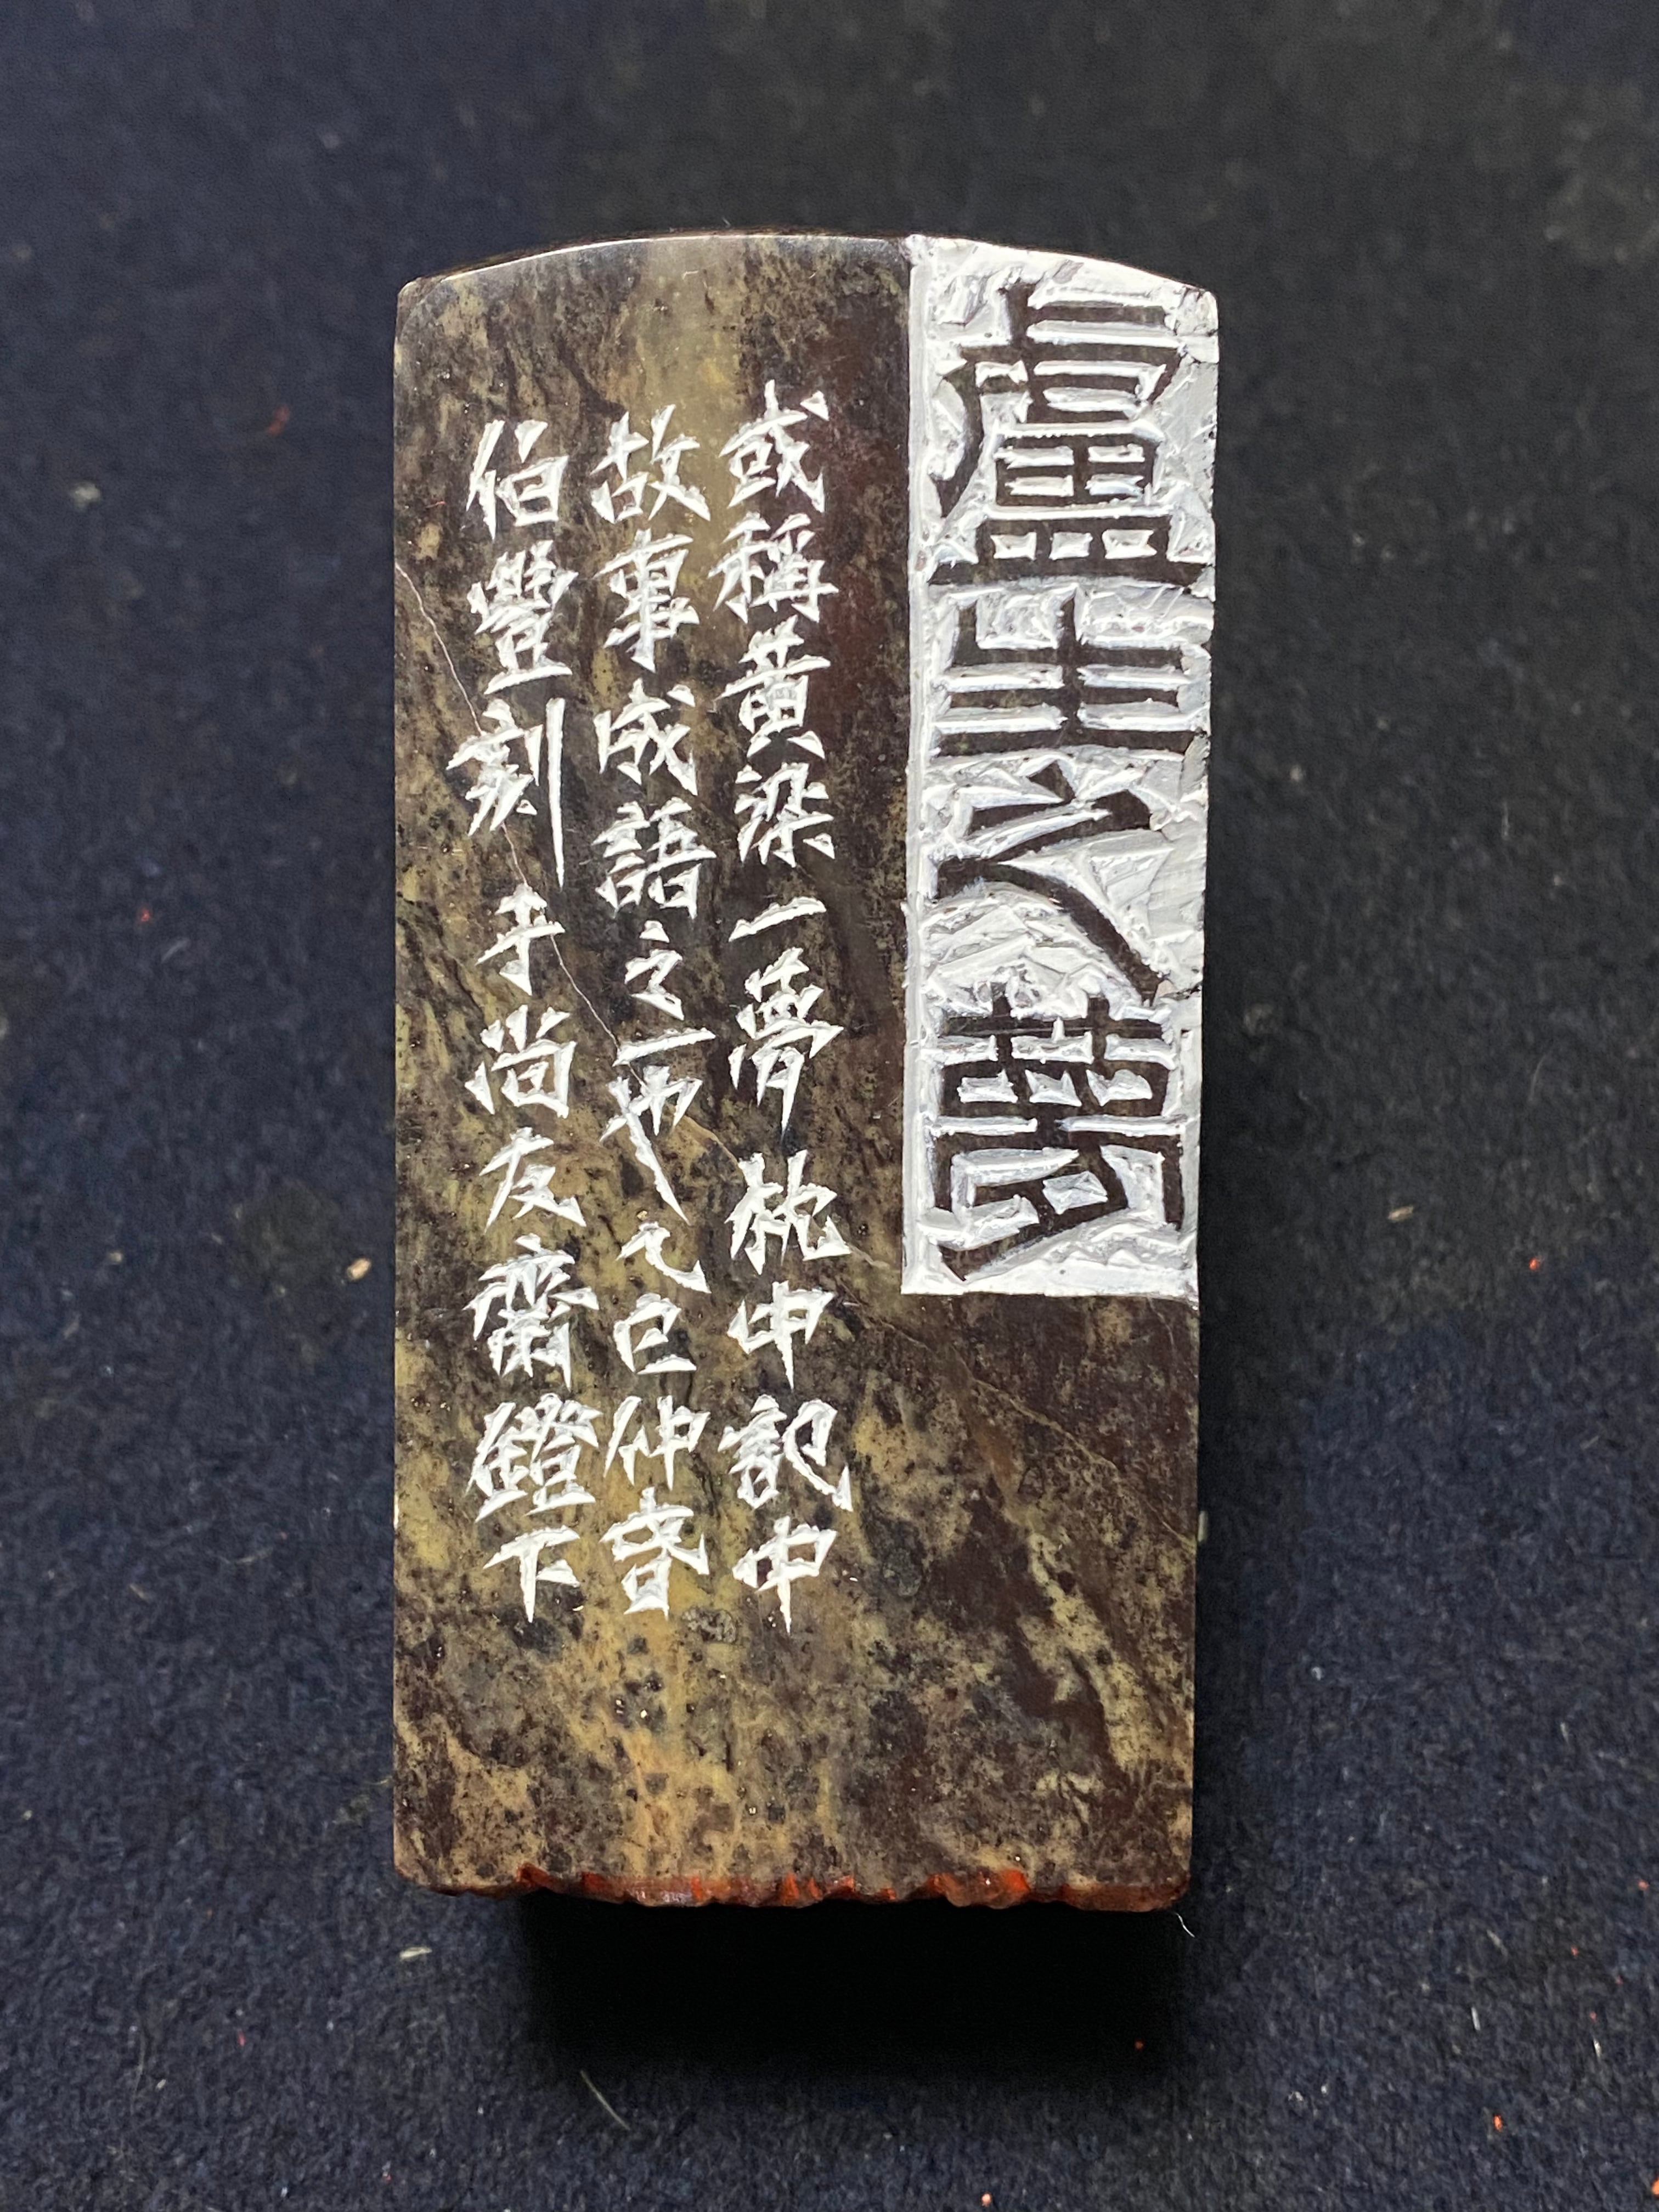 盧生之夢
或稱黃粱一夢枕中記中
故事成語之一也乙巳仲春
伯豐刻于尚友齋鐙下